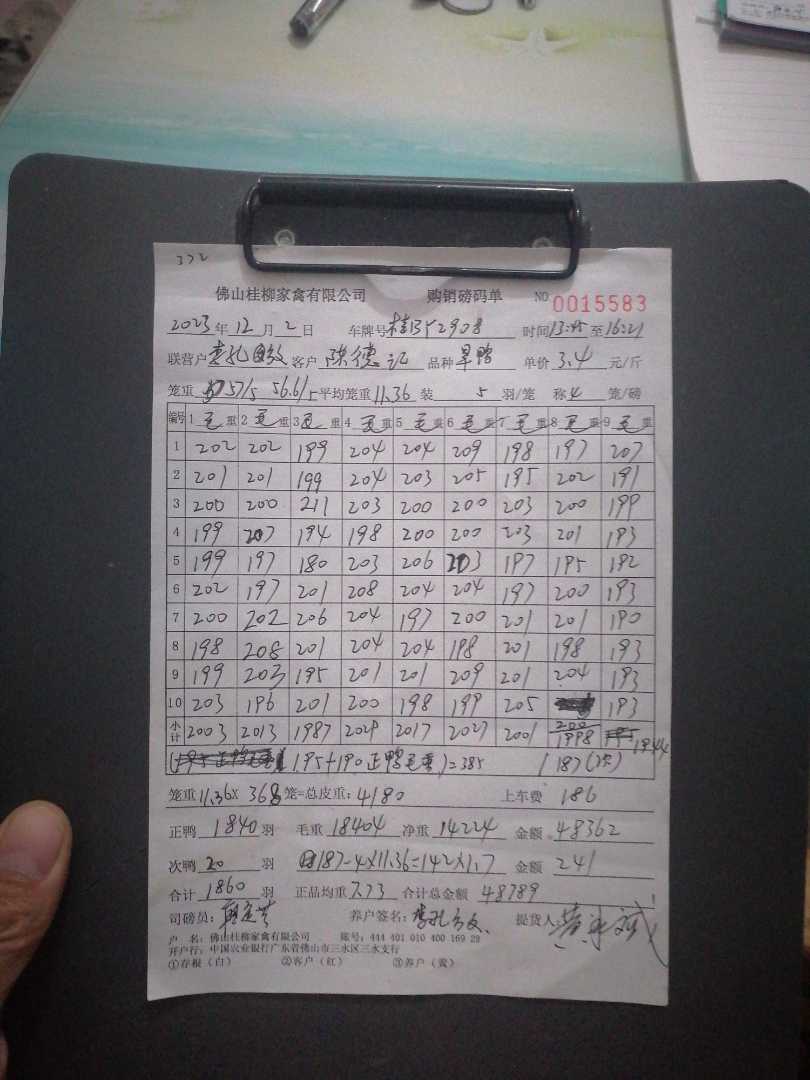 332
佛山桂柳家禽有限公司 购销磅码单 NO 0015583
2023年12月2日 车牌号桂 52908 时间13:45至16:21
联营户 孔 客户 陈德记 品种 旱鸭 单价 3.4 元/斤
笼重 57/5 56.6/5 平均笼重 11.36 装 5 羽/笼 称 4 笼/磅
编号 1 毛重 2 毛重 3 毛重 4 毛重 5 毛重 6 毛重 7 毛重 8 毛重 9 毛重
1 202 202 199 204 204 209 198 197 207
2 201 201 199 204 203 205 195 202 191
3 200 200 211 203 200 200 203 200 199
4 199 207 194 198 200 200 203 201 193
5 199 197 180 203 206 203 197 195 192
6 202 197 201 208 204 204 197 200 193
7 200 202 206 204 197 200 201 201 190
8 198 208 201 204 204 198 201 198 193
9 199 203 195 201 201 209 201 204 193
10 203 196 201 200 198 199 205 200 193
小计 2003 2013 1987 2029 2017 2027 2001 1998 1944
195+190正鸭毛重)=385 187(次)
笼重 11.36× 368 笼=总皮重: 4180 上车费 186
正鸭 1840 羽 毛重 18404 净重 14224 金额 48362
次鸭 20 羽 187-4×11.36=142×1.7 金额 241
合计 1860 羽 正品均重 7.73 合计总金额 48789
司磅员: 养户签名: 提货人:
户 名: 佛山桂柳家禽有限公司 账号: 444 401 010 400 169 28
开户行: 中国农业银行广东省佛山市三水区三水支行
①存根(白) ②客户(红) ③养户(黄)